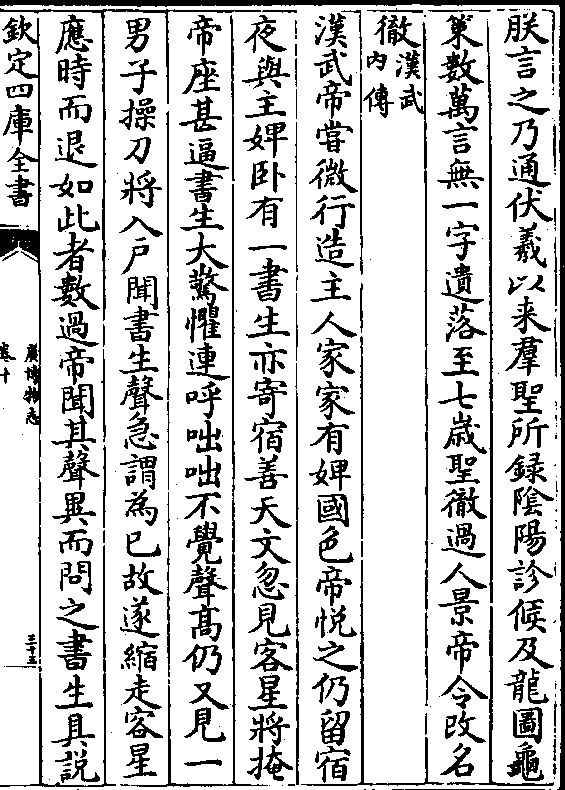 朕言之乃通伏羲以来羣聖所録隂陽診候及龍圖龜
䇿數萬言無一字遺落至七歳聖徹過人景帝令改名
徹漢武
内傳
漢武帝嘗微行造主人家家有婢國色帝悦之仍留宿
夜與主婢卧有一書生亦寄宿善天文忽見客星將掩
帝座甚逼書生大驚懼連呼咄咄不覺聲髙仍又見一
男子操刀將入户聞書生聲急謂為已故遂縮走客星
應時而退如此者數過帝聞其聲異而問之書生具説
欽定四庫全書
廣博物志
卷十
三十五